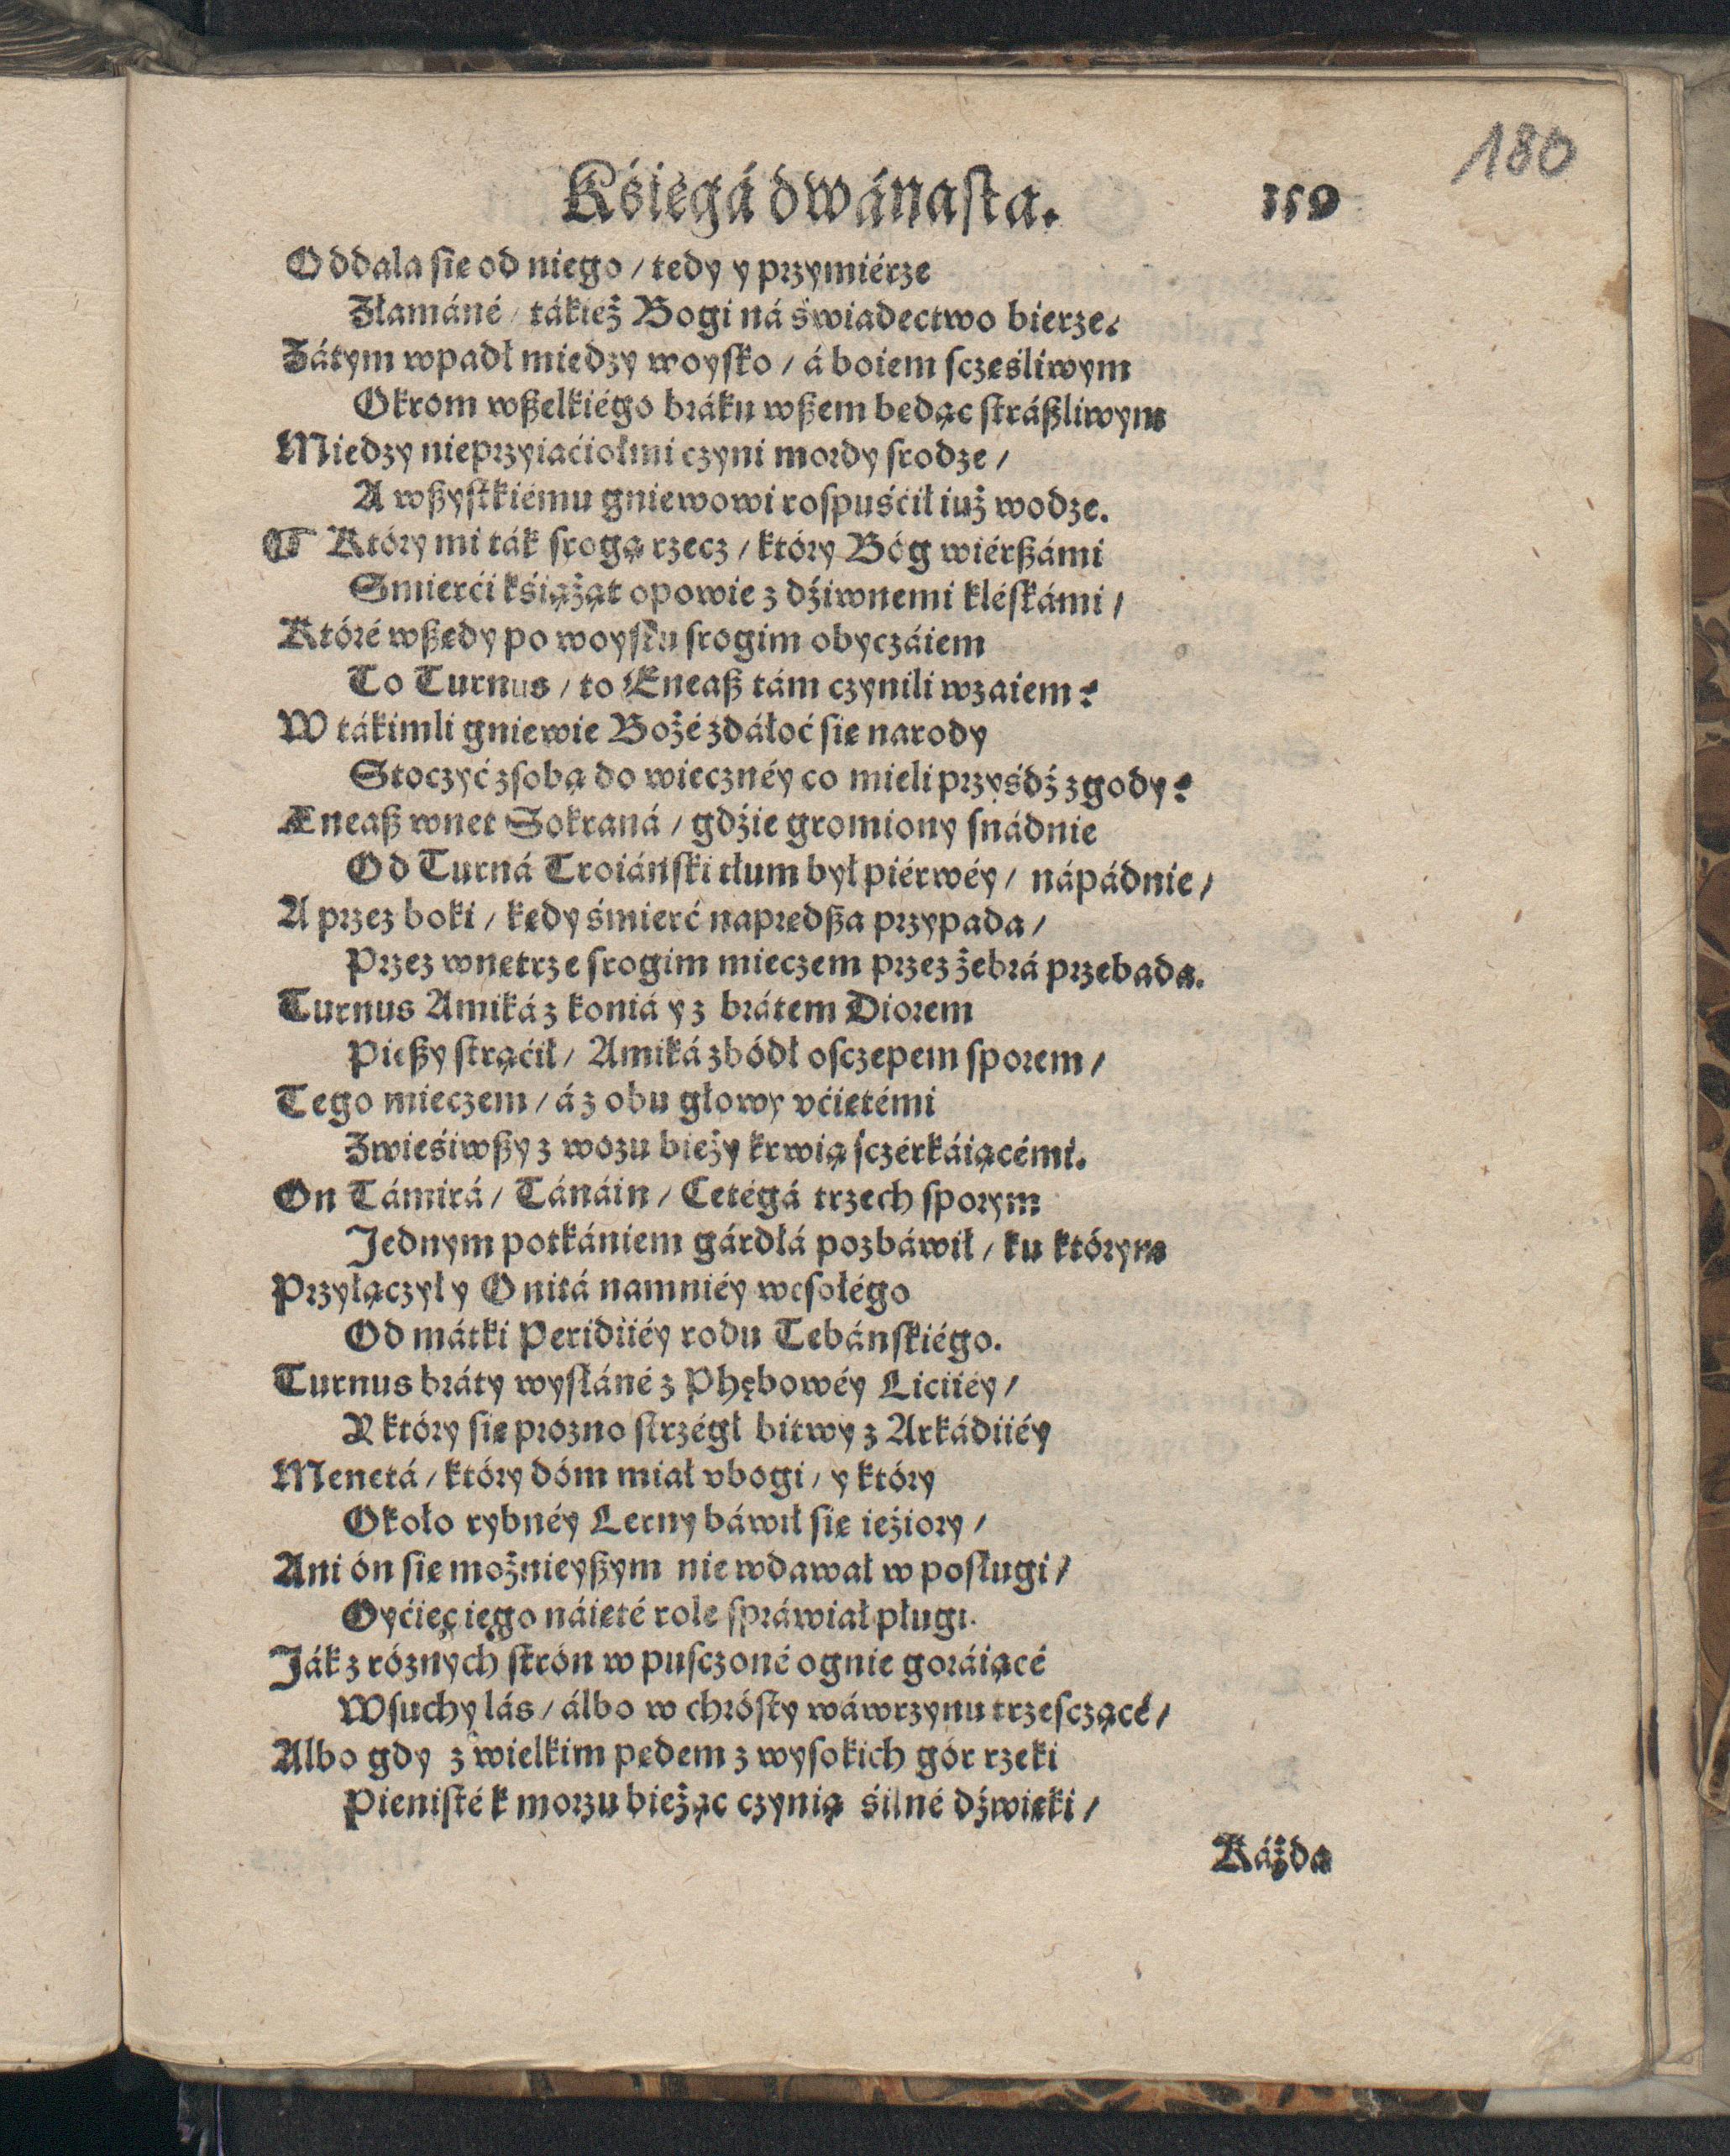 180
Kśięgá dwánasta. 359
Oddala się od niego / tedy y przymiérze
Złamáné / tákież Bogi ná świadectwo bierze.
Zátym wpadł miedzy woysko / á boiem sczęśliwym
Okrom wszelkiégo bráku wszem będąc strászliwym
Miedzy nieprzyiaćiołmi czyni mordy srodze /
A wszystkiému gniewowi rospuśćił iuż wodze.
Który mi ták srogą rzecz / który Bóg wiérszámi
Smierći kśiążąt opowie z dźiwnemi kléskámi /
Któré wszędy po woysku srogim obyczáiem
To Turnus / to Eneasz tám czynili wzaiem?
W tákimli gniewie Bożé zdáłoć się narody
Stoczyć z sobą do wiecznéy co mieli przyśdź zgody?
Æneasz wnet Sokraná / gdźie gromiony snádnie
Od Turná Troiáński tłum był piérwéy / nápádnie /
A przez boki / kędy śmierć naprędsza przypada /
Przez wnętrze srogim mieczem przez żebrá przebada.
Turnus Amiká z koniá y z brátem Diorem
Pieszy strąćił / Amiká zbódł osczepem sporem /
Tego mieczem / á z obu głowy vćiętémi
Zwieśiwszy z wozu bieży krwią sczérkáiącémi.
On Támirá / Tánáin / Cetégá trzech sporym
Jednym potkániem gárdłá pozbáwił / ku którym
Przyłączył y Onitá namniéy wesołégo
Od mátki Peridiiéy rodu Tebáńskiégo.
Turnus bráty wysłáné z Phębowéy Liciiéy /
Y który się prozno strzégł bitwy z Arkádiiéy
Menetá / który dóm miał vbogi / y który
Około rybnéy Lerny báwił się ieźiory /
Ani ón się możnieyszym nie wdawał w posługi /
Oyćiec iego náięté role spráwiał pługi.
Ják z róznych strón w pusczoné ognie goráiącé
W suchy lás / álbo w chrósty wáwrzynu trzesczącé /
Albo gdy z wielkim pędem z wysokich gór rzeki
Pienisté k morzu bieżąc czynią śilné dźwięki /
Káżda